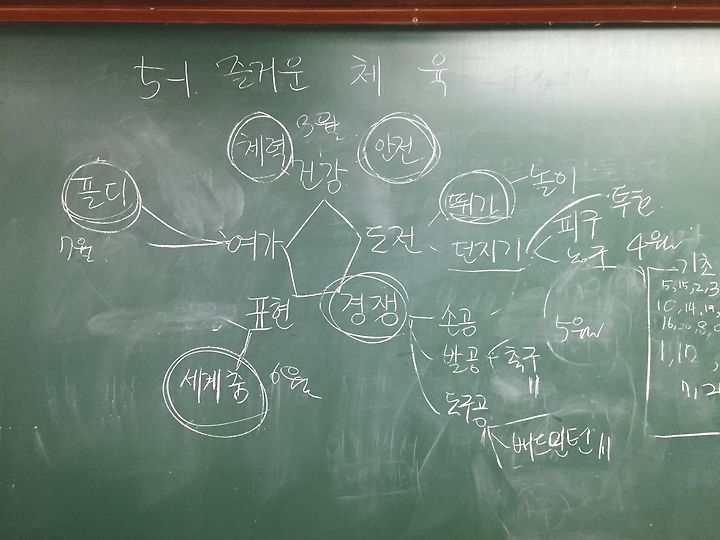 5-1. 즐거운 체 육
체력 3월 안전
건강
플디 7월
여가
도전
뛰기 놀이
던지기
피구 투현
농구 4월
표현
세계춤 6월
경쟁
손공
발공 축구 11
도구공 배드민턴 11
5월
기초
5, 15, 2, 3
10, 14, 19,
1, 12,